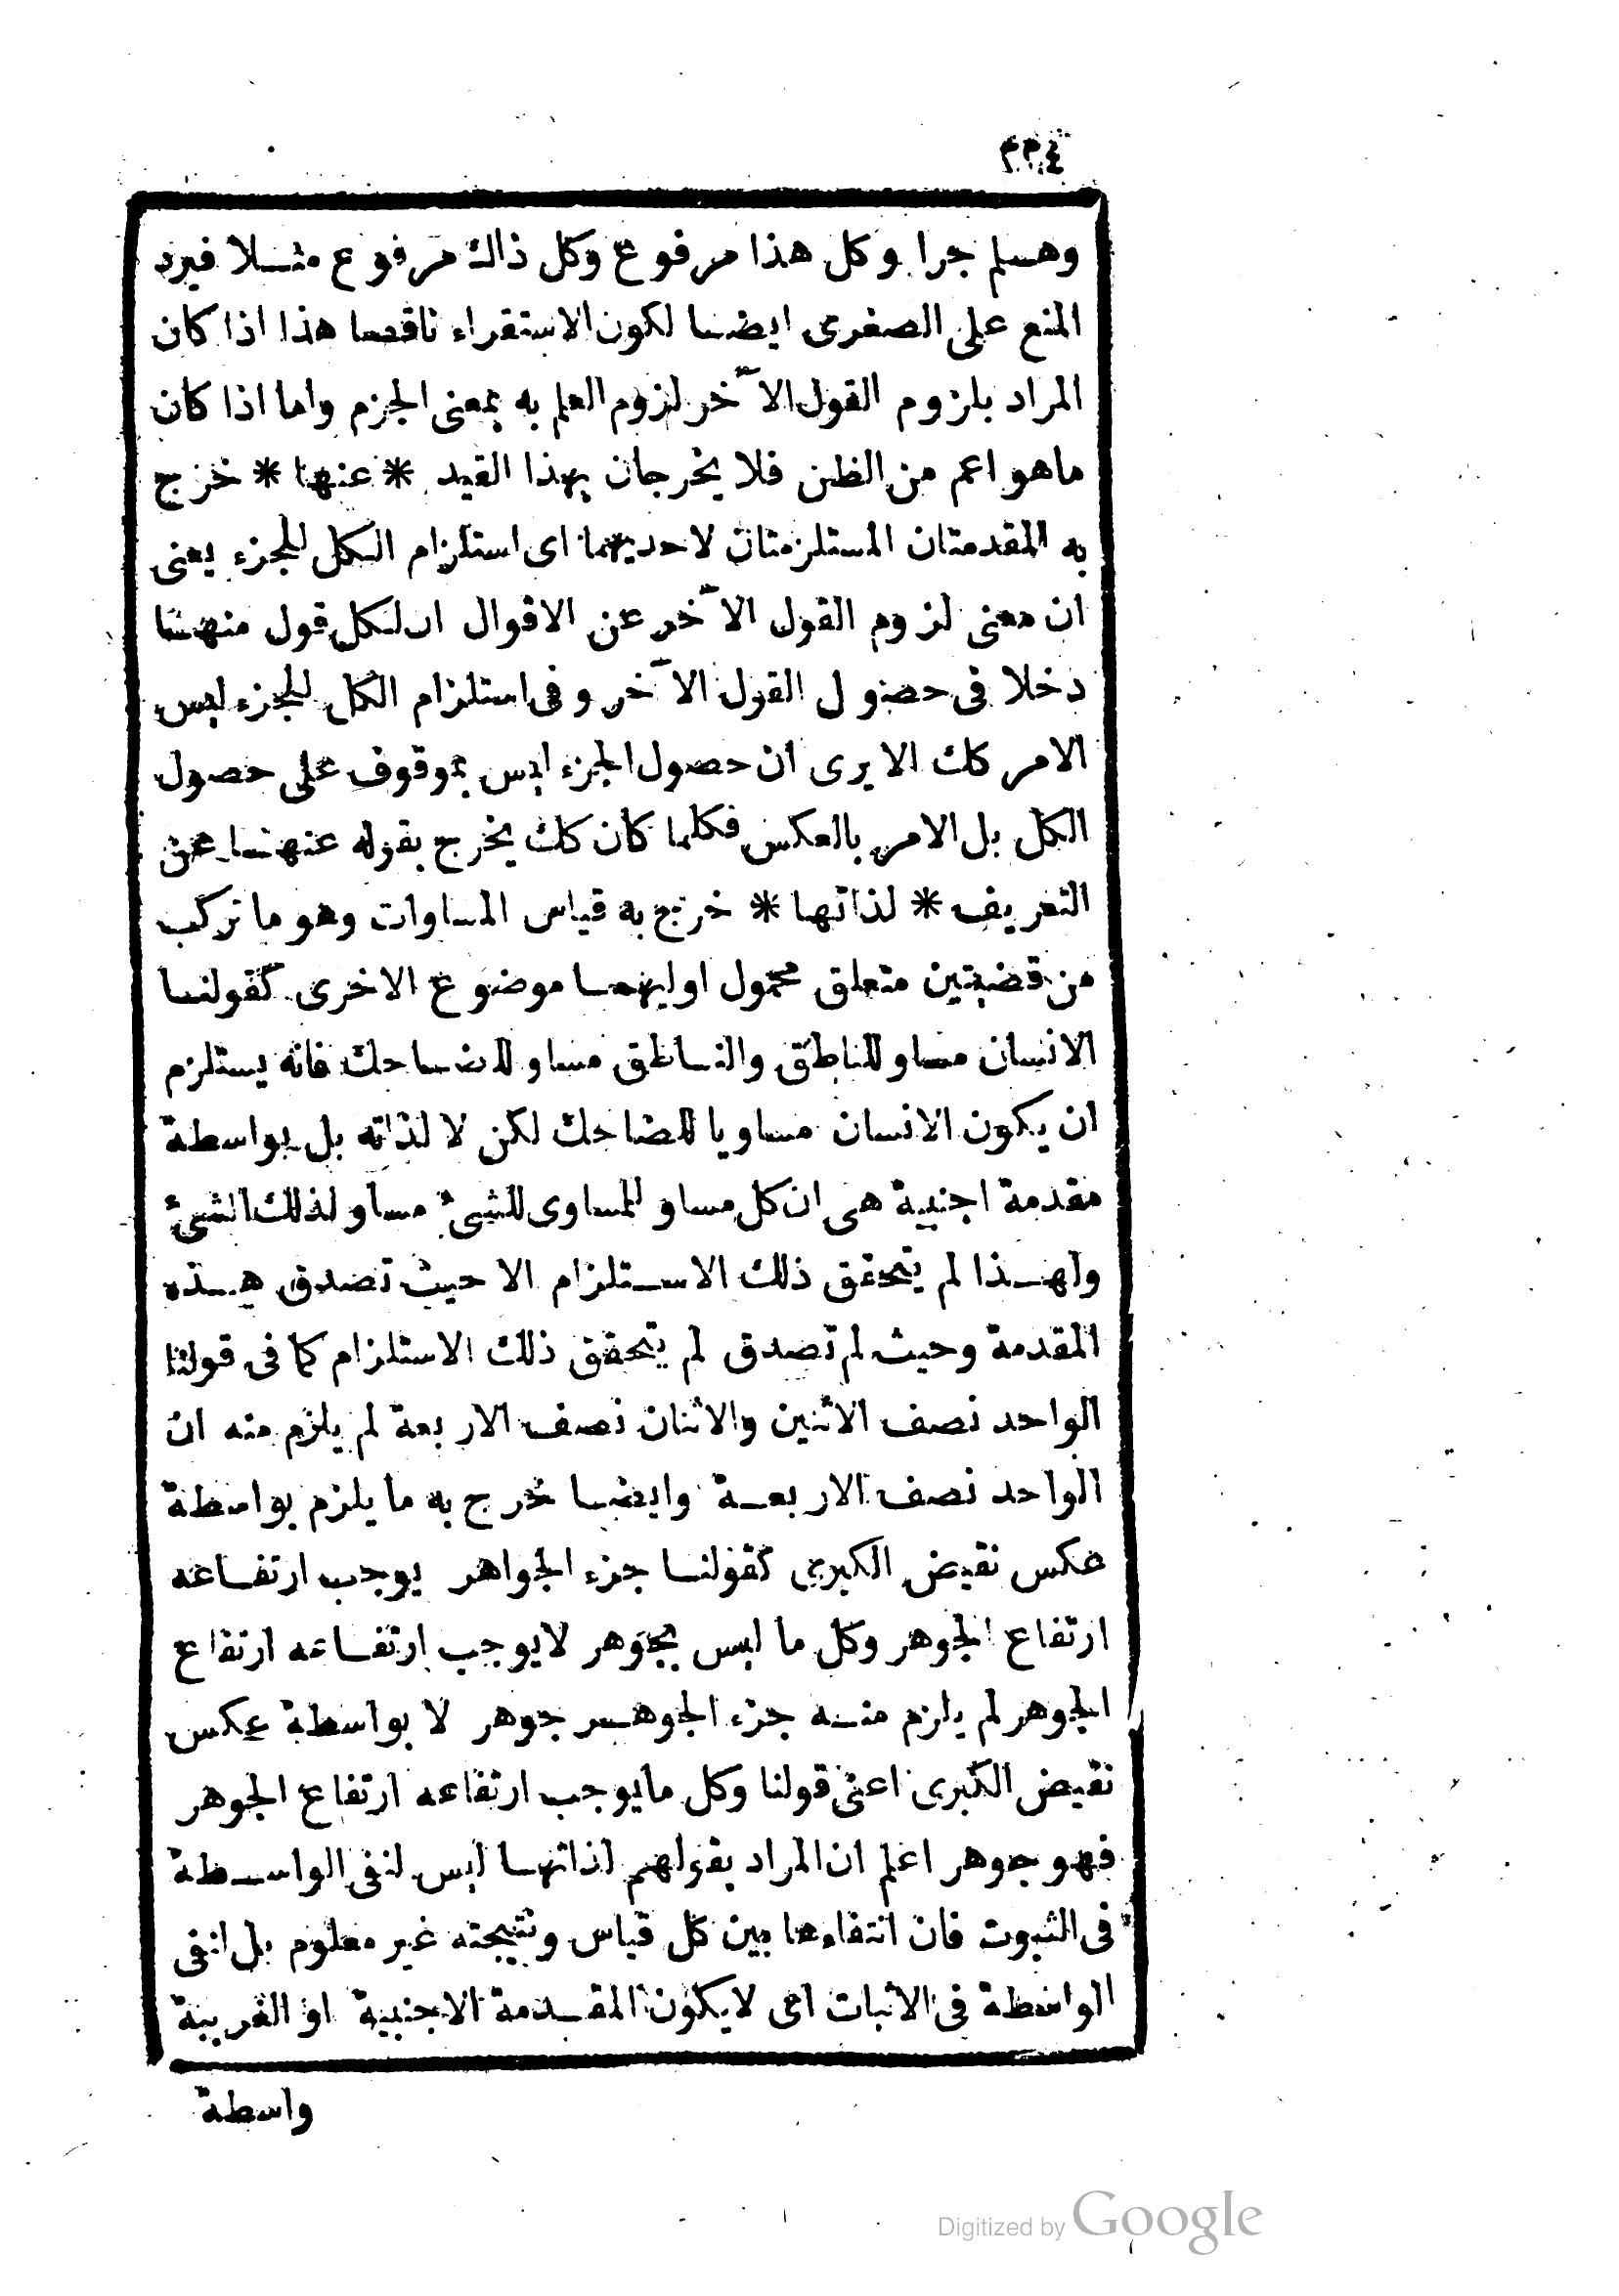 ٢٣٤
وهلم جرا وكل هذا مرفوع وكل ذاك مرفوع مثلا فيرد
المنع على الصغرى ايضا لكون الاستقراء ناقصا هذا اذا كان
المراد بلزوم القول الآخر لزوم العلم به بمعنى الجزم واما اذا كان
ماهو اعم من الظن فلا يخرجان بهذا القيد * عنها * خرج
به المقدمتان المستلزمتان لاحديهما اى استلزام الكل للجزء يعنى
ان معنى لزوم القول الآخر عن الاقوال ان لكل قول منهما
دخلا فى حصول القول الآخر وفى استلزام الكل للجزء ليس
الامر كك الا يرى ان حصول الجزء ليس بموقوف على حصول
الكل بل الامر بالعكس فكلما كان كك يخرج بقوله عنها عن
التعريف * لذاتها * خرج به قياس المساوات وهو ما تركب
من قضيتين متعلق محمول اوليهما موضوع الاخرى كقولنا
الانسان مساو للناطق والناطق مساو للضاحك فانه يستلزم
ان يكون الانسان مساويا للضاحك لكن لا لذاته بل بواسطة
مقدمة اجنبية هى ان كل مساو للمساوى للشئ مساو لذلك الشئ
ولهذا لم يتحقق ذلك الاستلزام الا حيث تصدق هذه
المقدمة وحيث لم تصدق لم يتحقق ذلك الاستلزام كما فى قولنا
الواحد نصف الاثنين والاثنان نصف الاربعة لم يلزم منه ان
الواحد نصف الاربعة وايضا خرج به ما يلزم بواسطة
عكس نقيض الكبرى كقولنا جزء الجواهر يوجب ارتفاعه
ارتفاع الجوهر وكل ما ليس بجوهر لايوجب ارتفاعه ارتفاع
الجوهر لم يلزم منه جزء الجوهر جوهر لا بواسطة عكس
نقيض الكبرى اعنى قولنا وكل مايوجب ارتفاعه ارتفاع الجوهر
فهو جوهر اعلم ان المراد بقولهم لذاتها ليس لنفى الواسطة
فى الثبوت فان انتفاءها بين كل قياس ونتيجته غير معلوم بل لنفى
الواسطة فى الاثبات اى لايكون المقدمة الاجنبية او الغريبة
واسطة
Digitized by Google